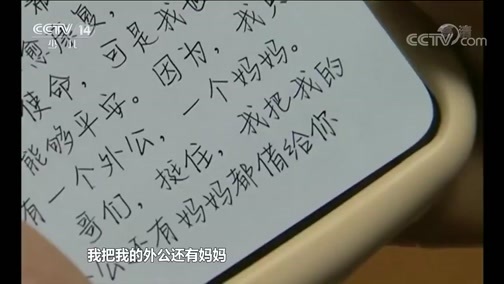 CCTV 14
少儿
CCTV.com
愈康复,
使命,可是我也
能够平安。因为,我只
有一个外公,一个妈妈。
哥们,挺住,我把我的
公还有妈妈都借给你
我把我的外公还有妈妈